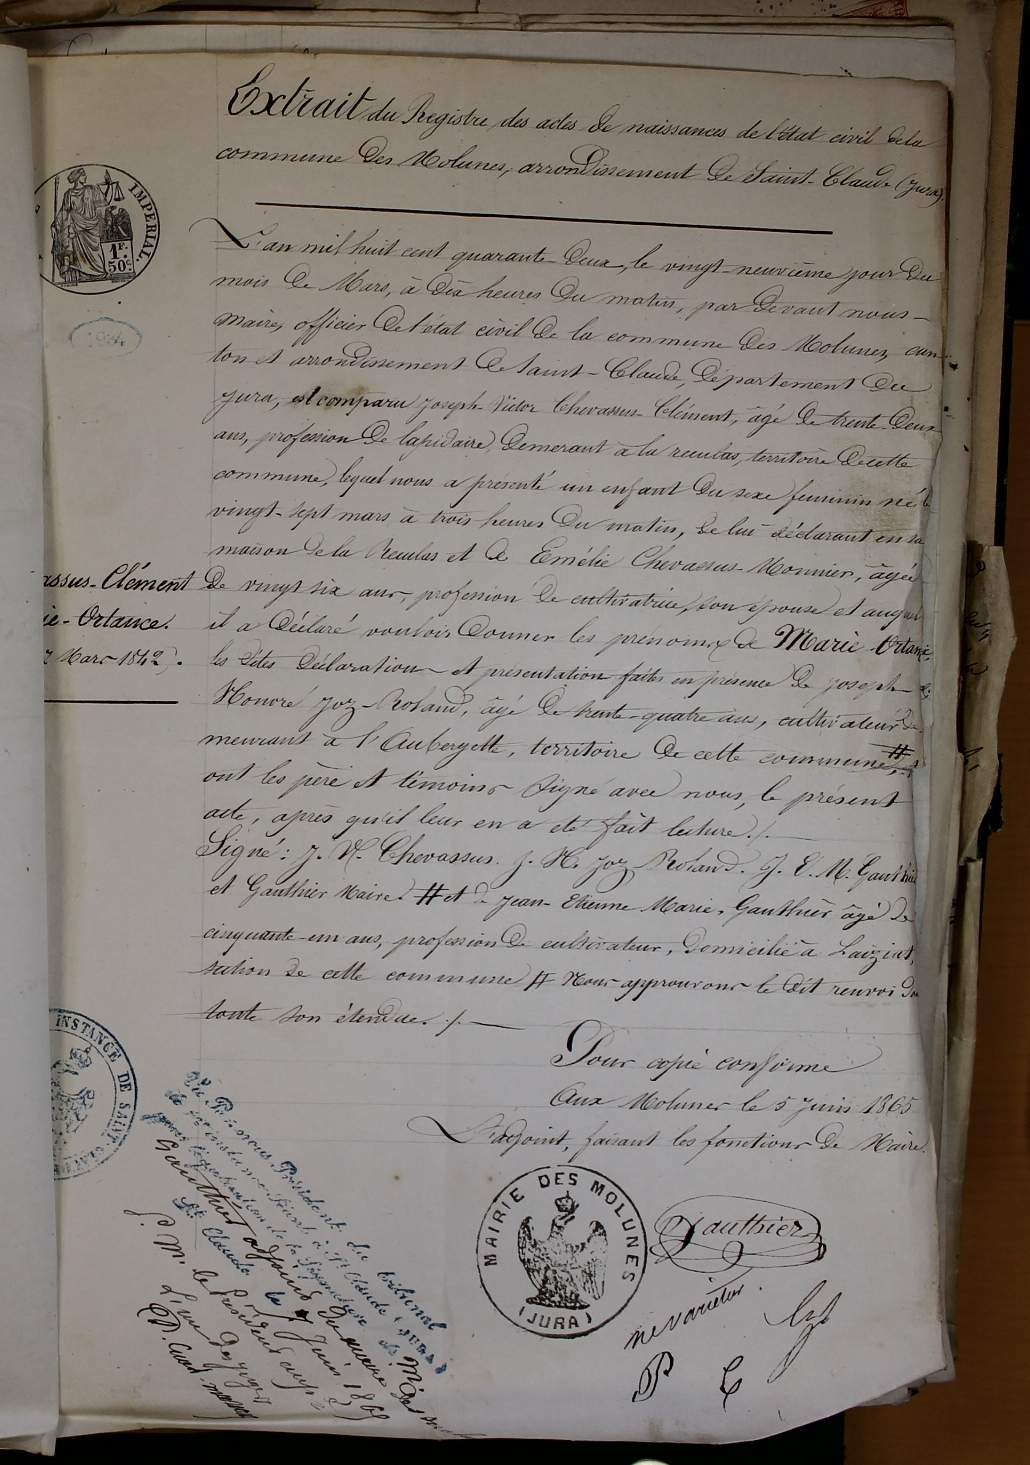 Extrait du Registre des actes de naissances de l'état civil de la
commune des Molunes, arrondissement de Saint-Claude (Jura).
IMPERIAL.
1 F.
50 c.
L'an mil huit cent quarante-deux, le vingt-neuvième jour du
mois de Mars, à dix heures du matin, par devant nous
maire, officier de l'état civil de la commune des Molunes, can-
ton et arrondissement de Saint-Claude, département du
Jura, est comparu Joseph-Victor Chevassus-Clément, âgé de trente-deux
ans, profession de lapidaire, demeurant à la reculas, territoire de cette
commune, lequel nous a présenté un enfant du sexe feminin né le
vingt-sept mars à trois heures du matin, de lui déclarant en sa
maison de la Reculas et de Emélie Chevassus-Monnier, âgée
de vingt six ans, profession de cultivatrice, son épouse et auquel
il a déclaré vouloir donner les prénoms de Marie-Ortance,
les dites déclaration et présentation faites en présence de Joseph
Honoré Joz-Roland, âgé de trente-quatre ans, cultivateur de
meurant à l'Aubergette, territoire de cette commune, #
ont les père et témoins signé avec nous, le présent
acte, après qu'il leur en a été fait lecture ./.
Signé : J. V. Chevassus. J. H. Joz Roland. J. E. M. Gauthier
et Gauthier Maire. # et de Jean-Etienne Marie-Gauthier âgé de
cinquante-un ans, profession de cultivateur, domicilié à
section de cette commune # Nous approuvons le dit renvoi dans
toute son étendue. ./.
assus-Clément
ie-Ortance.
7 Mars 1842).
Pour copie conforme
Aux Molunes le 5 Juin 1865
L'adjoint, faisant les fonctions de Maire.
Gauthier
MAIRIE DES MOLUNES
(JURA)
ne varietur.
INSTANCE DE SAINT-CLAUDE
Vu Par nous Président du tribunal
de 1re instance séant à St Claude (JURA)
pour légalisation de la signature de M
Gauthier adjoint au maire des
St Claude le 7 Juin 1865
P. M. le Président emp
L'un des juges